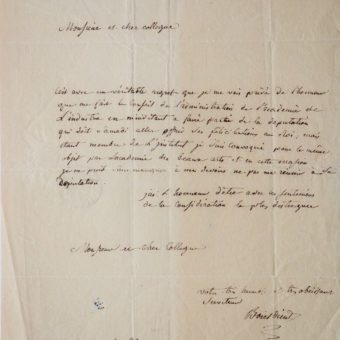 Monsieur et cher collegue
C'est avec un véritable regret que je me vois privé de l'honneur
que me fait le Conseil de l'administration de l'académie de
L'industrie en m'invitant a faire partie de la députation
qui doit samedi aller offrir ses félicitations au Roi, mais
étant membre de L'institut je suis convoqué pour le même
objet par L'académie des beaux arts et en cette occasion
je ne puis sans manquer a mes devoirs ne pas me réunir a la
députation.
j'ai L'honneur d'être avec les sentimens
de la considération la plus distinguée
Monsieur et cher Collegue
votre très humble et très obéissant
Serviteur